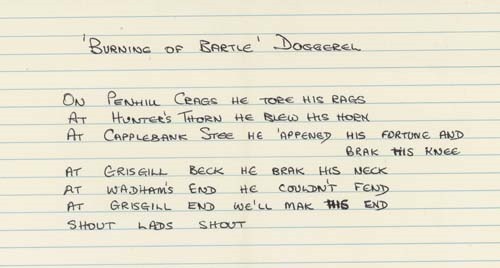 'BURNING OF BARTLE' DOGGEREL
ON PENHILL CRAGS HE TORE HIS RAGS
AT HUNTER'S THORN HE BLEW HIS HORN
AT CAPPLEBANK STEE HE 'APPENED HIS FORTUNE AND
BRAK HIS KNEE
AT GRISGILL BECK HE BRAK HIS NECK
AT WADHAM'S END HE COULDN'T FEND
AT GRISGILL END WE'LL MAK HIS END
SHOUT LADS SHOUT